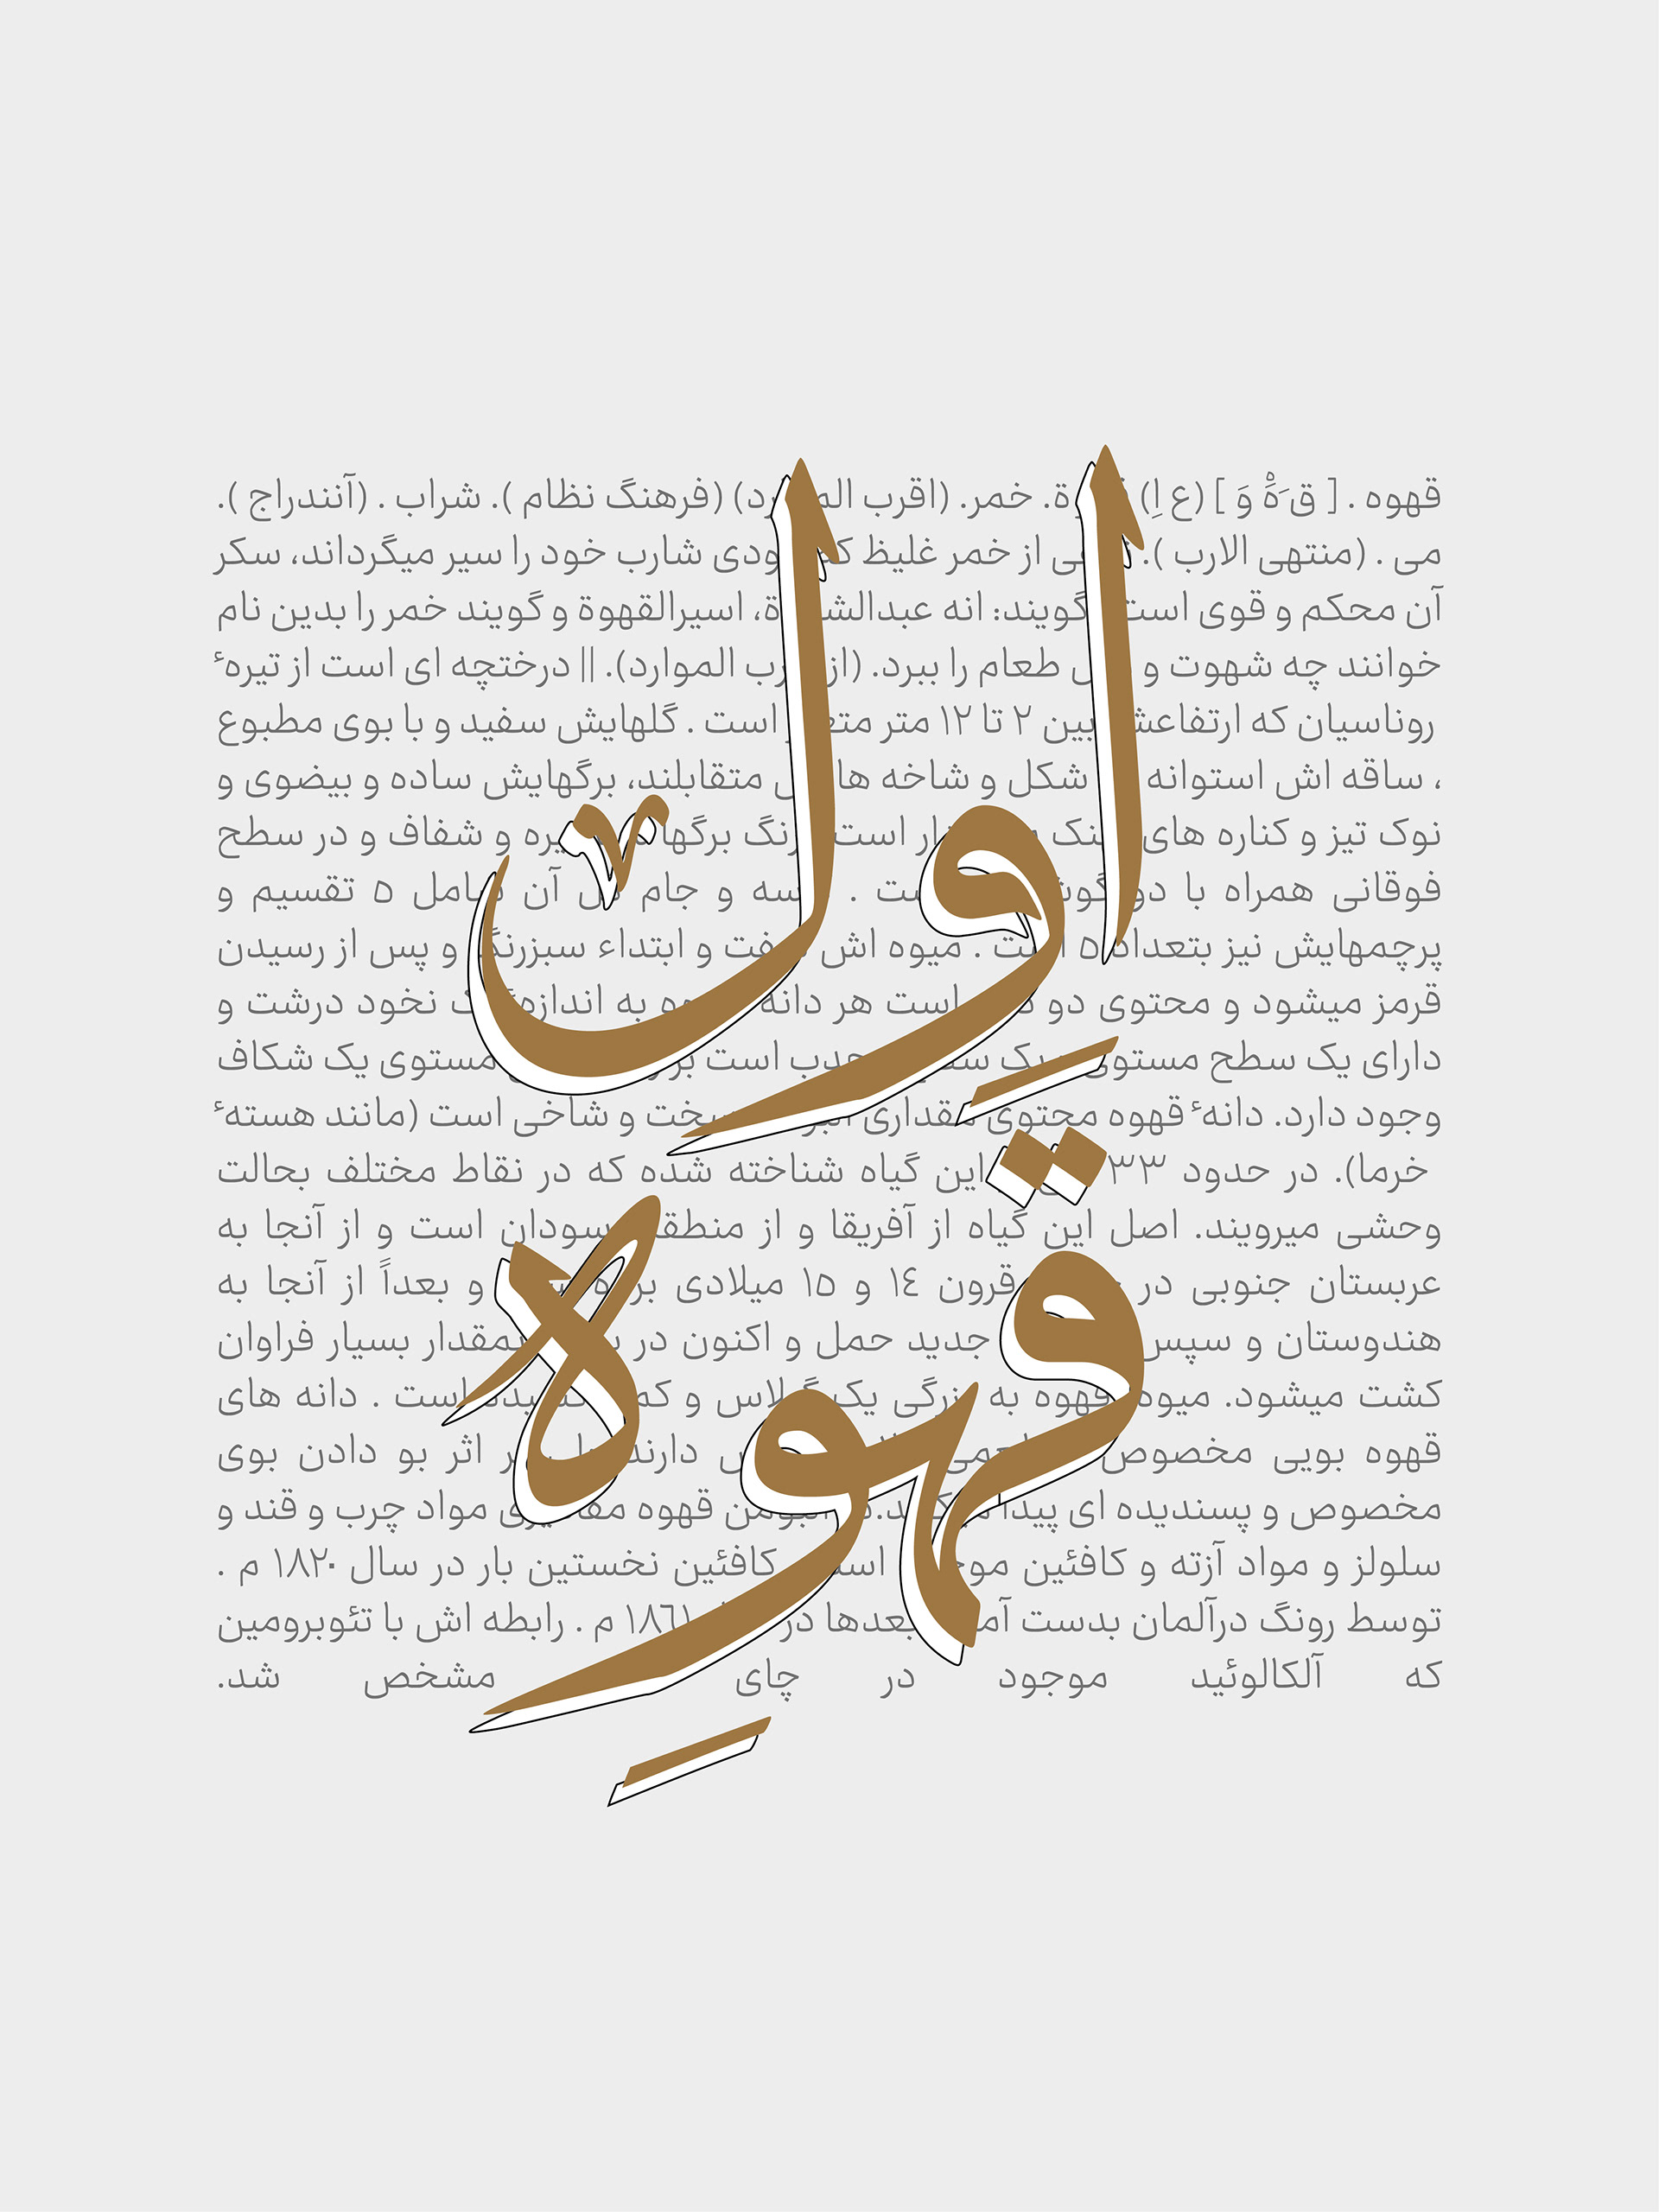 قهوه . [ ق َهْ وَ ] (ع اِ) خمر. (اقرب (فرهنگ نظام ). شراب . (آنندراج ).
می . (منتهی الارب ). از خمر غلیظ شارب خود را سیر میگرداند، سکر
آن محکم و قوی است گویند: انه اسیرالقهوة و گویند خمر را بدین نام
خوانند چه شهوت و طعام را ببرد. (از الموارد). || درختچه ای است از تیرهٔ
روناسیان که ارتفاعش بین ۲ تا ۱۲ متر است . گلهایش سفید و با بوی مطبوع
، ساقه اش استوانه شکل و شاخه متقابلند، برگهایش ساده و بیضوی و
نوک تیز و کناره های است رنگ و شفاف و در سطح
فوقانی همراه با دو . و جام آن شامل ۵ تقسیم و
پرچمهایش نیز بتعداد ۵ است . میوه اش و ابتداء سبزرنگ و پس از رسیدن
قرمز میشود و محتوی دو است هر دانهٔ به اندازهٔ نخود درشت و
دارای یک سطح مستوی یک است مستوی یک شکاف
وجود دارد. دانهٔ قهوه محتوی مقداری سخت و شاخی است (مانند هستهٔ
خرما). در حدود ۳۳ این گیاه شناخته شده که در نقاط مختلف بحالت
وحشی میرویند. اصل این گیاه از آفریقا و از سودان است و از آنجا به
عربستان جنوبی در قرون ١٤ و ١٥ میلادی و بعداً از آنجا به
هندوستان و سپس جدید حمل و اکنون در بمقدار بسیار فراوان
کشت میشود. میوهٔ قهوه به بزرگی یک گیلاس و است . دانه های
قهوه بویی مخصوص دارند اثر بو دادن بوی
مخصوص و پسندیده ای پیدا قهوه مواد چرب و قند و
سلولز و مواد آزته و کافئین کافئین نخستین بار در سال ١٨٢٠ م .
توسط رونگ درآلمان بدست بعدها در ١٨٦١ م . رابطه اش با تئوبرومین
که آلکالوئید موجود در چای مشخص شد.
اوِّل
قهوِه